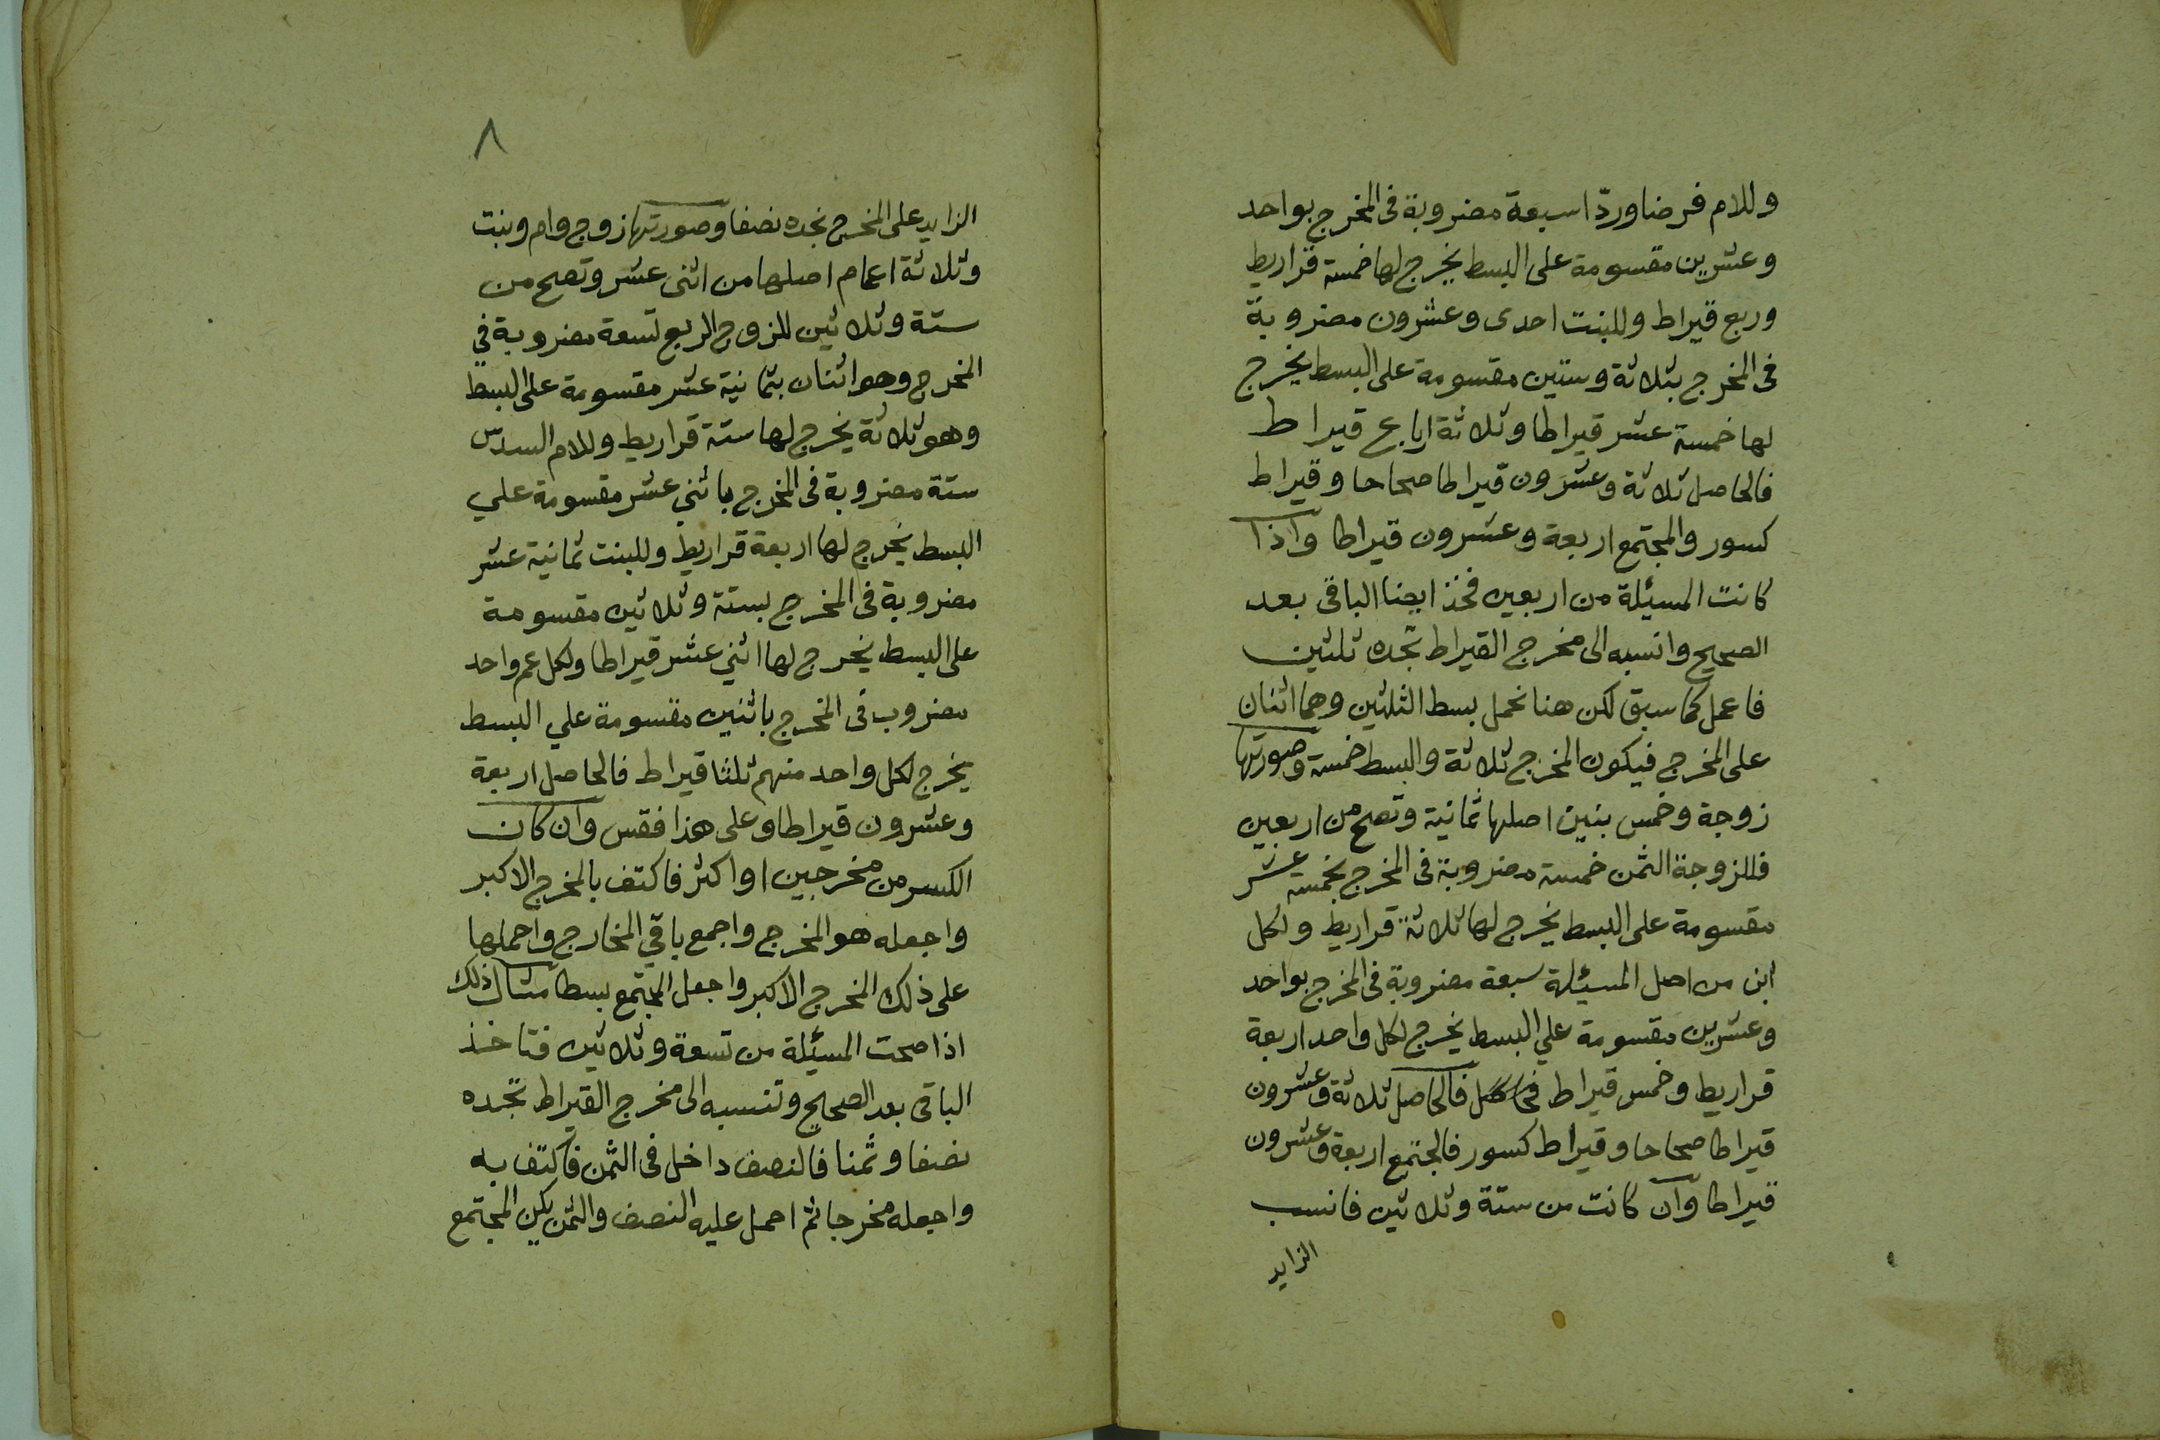 وللام فرضا وردّا سبعة مضروبة فى المخرج بواحد
وعشرين مقسومة على البسط يخرج لها خمسة قراريط
وربع قيراط وللبنت احدى وعشرون مضروبة
فى المخرج بثلاثة وستين مقسومة على البسط يخرج
لها خمسة عشر قيراطا وثلاثة ارباع قيراط
فالحاصل ثلاثة وعشرون قيراطا صحاحا وقيراط
كسور والمجتمع اربعة وعشرون قيراطا واذا
كانت المسئلة من اربعين فخذ ايضا الباقى بعد
الصحيح وانسبه الى مخرج القيراط تجده ثلثين
فاعمل كما سبق لكن هنا نحمل بسط الثلثين وهما اثنان
على المخرج فيكون المخرج ثلاثة والبسط خمسة وصورتها
زوجة وخمس بنين اصلها ثمانية وتصح من اربعين
فللزوجة الثمن خمسة مضروبة فى المخرج بخمسة عشر
مقسومة على البسط يخرج لها ثلاثة قراريط ولكل
ابن من اصل المسيئلة سبعة مضروبة فى المخرج بواحد
وعشرين مقسومة علي البسط يخرج لكل واحد اربعة
قراريط وخمس قيراط فالحاصل ثلاثة وعشرون
قيراطا صحاحا وقيراط كسور فالمجتمع اربعة وعشرون
قيراطا وان كانت من ستة وثلاثين فانسب
الزايد
٨
الزايد على المخرج تجده نصفا وصورتها زوج وام وبنت
وثلاثة اعمام اصلها من اثنى عشر وتصح من
ستة وثلاثين للزوج الربع تسعة مضروبة في
المخرج وهو اثنان بثمانية عشر مقسومة على البسط
وهو ثلاثة يخرج لها ستة قراريط وللام السدس
ستة مضروبة فى المخرج باثني عشر مقسومة علي
البسط يخرج لها اربعة قراريط وللبنت ثمانية عشر
مضروبة فى المخرج بستة وثلاثين مقسومة
على البسط يخرج لها اثني عشر قيراطا ولكل عم واحد
مضروب فى المخرج باثنين مقسومة علي البسط
يخرج لكل واحد منهم ثلثا قيراط فالحاصل اربعة
وعشرون قيراطا وعلى هذا فقس وان كان
الكسر من مخرجين او اكثر فاكتف بالمخرج الاكبر
واجعله هو المخرج واجمع باقي المخارج واحملها
على ذلك المخرج الاكبر واجعل المجتمع بسطا مثال ذلك
اذا صحت المسئلة من تسعة وثلاثين فتاخذ
الباقى بعد الصحيح وتنسبه الى مخرج القيراط تجده
نصفا وثمنا فالنصف داخل فى الثمن فاكتف به
واجعله مخرجا ثم احمل عليه النصف والثمن يكن المجتمع